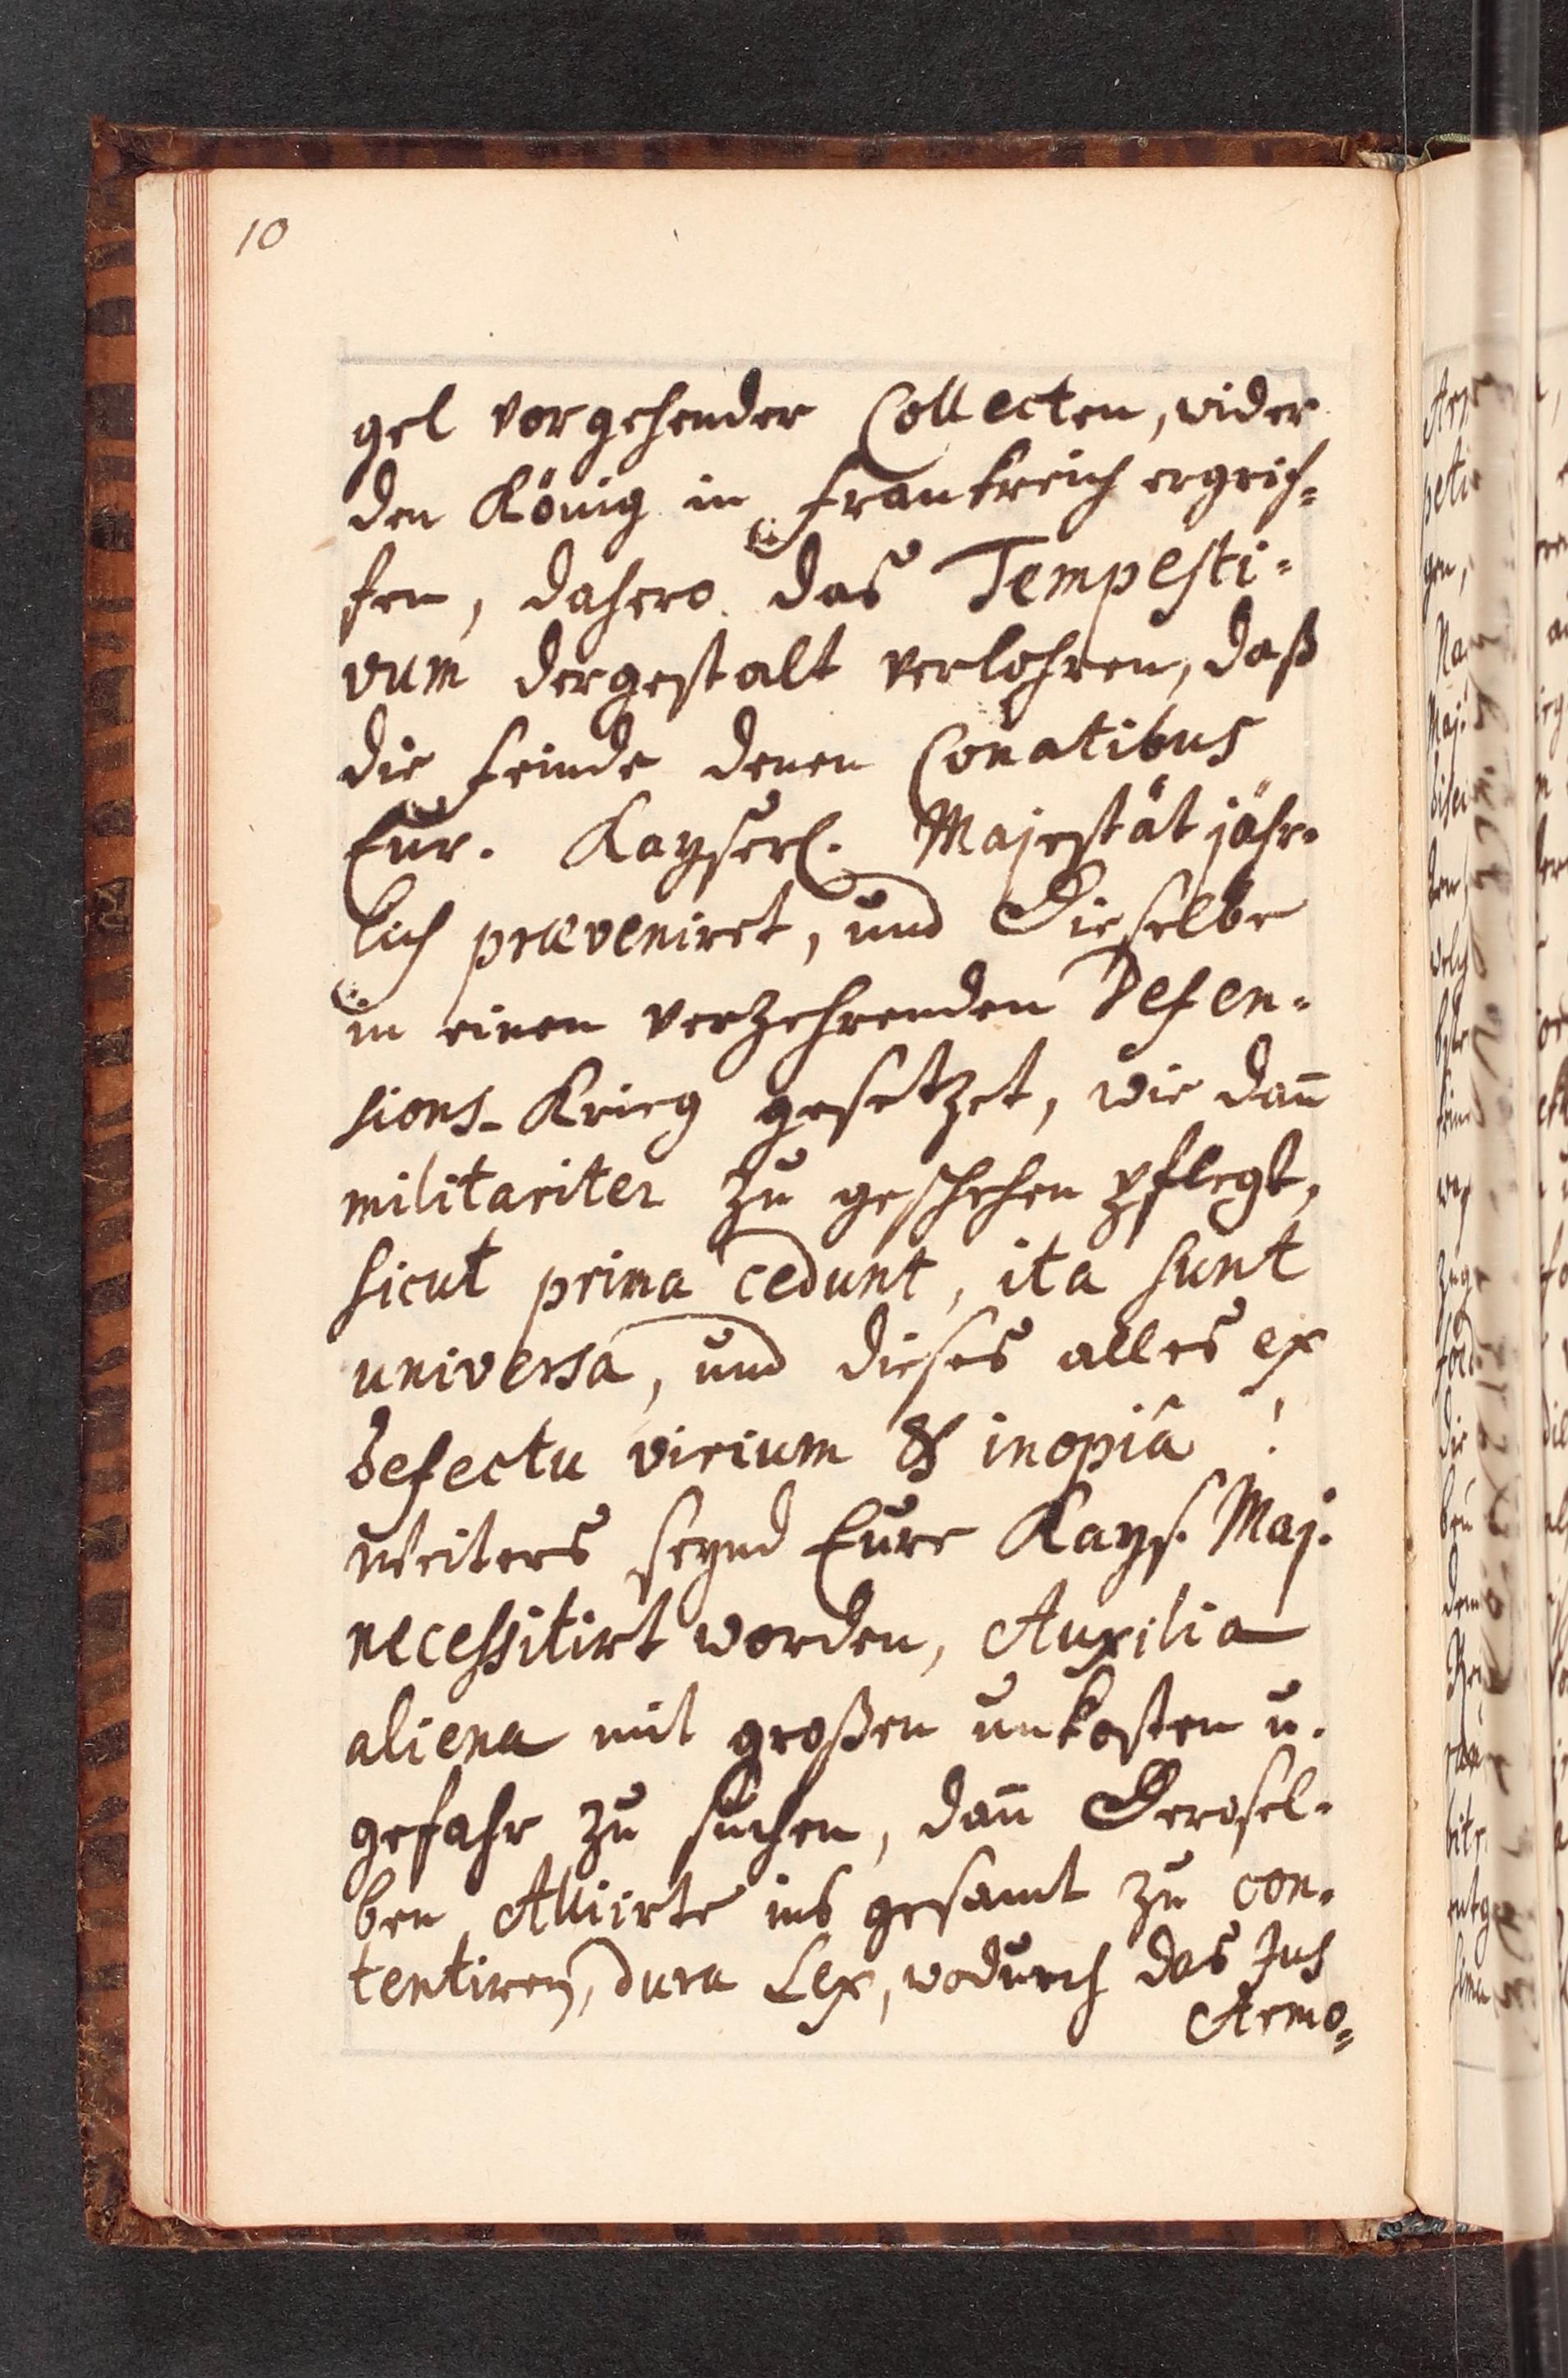 10
gel vorgehender Collecten, wider
den König in Frankreich ergrif=
fen, dahero das Tempesti=
vum dergestalt verlohren, daß
die Feinde denen Conatibus
Eur. Kayserl. Majestät jähr=
lich præveniret, und Dieselbe
in einen verzehrenden Defen=
sions-Krieg gesetzet, wie dañ
militariter zu geschehen pflegt,
sicut prima cedunt, ita sunt
universa, und dieses alles ex
defectu virium & inopiâ!
Weiters seynd Eure Kays. Maj.
necessitirt worden, Auxilia
aliena mit großen unkosten u.
gefahr zu suchen, dañ Derosel=
ben Alliirte ins gesamt zu con=
tentiren, dura Lex, wodurch das Jus
Armo=